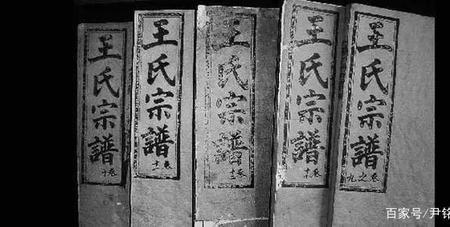 王氏宗譜
卷之九
王氏宗譜
卷十
王氏宗譜
王氏宗譜
王氏宗譜
百家号/尹铭